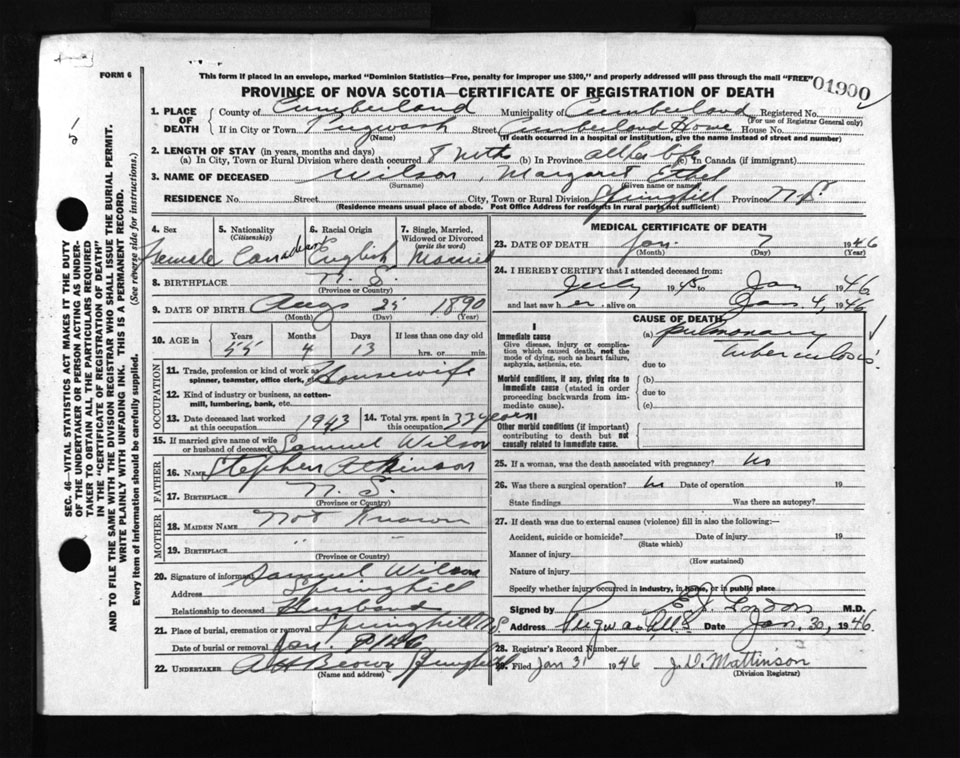 FORM 6
This form if placed in an envelope, marked "Dominion Statistics—Free, penalty for improper use $300," and properly addressed will pass through the mail "FREE"
01900
PROVINCE OF NOVA SCOTIA—CERTIFICATE OF REGISTRATION OF DEATH
1. PLACE OF DEATH
County of Cumberland Municipality of Cumberland Registered No.
(For use of Registrar General only)
If in City or Town Pugwash Street Cumberland Home House No.
(Name) (If death occurred in a hospital or institution, give the name instead of street and number)
2. LENGTH OF STAY (in years, months and days)
(a) In City, Town or Rural Division where death occurred 8 mths (b) In Province all her life (c) In Canada (if immigrant)
3. NAME OF DECEASED Wilson, Margaret Ethel
(Surname) (Given name or names)
RESIDENCE No. Street City, Town or Rural Division Springhill Province N.S.
(Residence means usual place of abode. Post Office Address for residents in rural parts not sufficient)
4. Sex Female
5. Nationality (Citizenship) Canadian
6. Racial Origin English
7. Single, Married, Widowed or Divorced (write the word) Married
8. BIRTHPLACE N.S.
(Province or Country)
9. DATE OF BIRTH Aug 25 1890
(Month) (Day) (Year)
10. AGE in Years 55 Months 4 Days 13 If less than one day old hrs. or min.
OCCUPATION
11. Trade, profession or kind of work as spinner, teamster, office clerk, Housewife
12. Kind of industry or business, as cotton-mill, lumbering, bank, etc.
13. Date deceased last worked at this occupation 1943
14. Total yrs. spent in this occupation 33 years
15. If married give name of wife or husband of deceased Samuel Wilson
FATHER
16. Name Stephen Atkinson
17. Birthplace N.S.
(Province or Country)
MOTHER
18. MAIDEN NAME Not Known
19. BIRTHPLACE " "
(Province or Country)
20. Signature of informant Samuel Wilson
Address Springhill
Relationship to deceased Husband
21. Place of burial, cremation or removal Springhill N.S.
Date of burial or removal Jan. 9 1946
22. UNDERTAKER A H Brown Springhill
(Name and address)
MEDICAL CERTIFICATE OF DEATH
23. DATE OF DEATH Jan. 7 1946
(Month) (Day) (Year)
24. I HEREBY CERTIFY that I attended deceased from:
July 1945 to Jan 1946
and last saw her alive on Jan 4, 1946
CAUSE OF DEATH
I
Immediate cause
Give disease, injury or complication which caused death, not the mode of dying, such as heart failure, asphyxia, asthenia, etc.
(a) pulmonary tuberculosis
due to
Morbid conditions, if any, giving rise to immediate cause (stated in order proceeding backwards from immediate cause).
(b)
due to
(c)
II
Other morbid conditions (if important) contributing to death but not causally related to immediate cause.
25. If a woman, was the death associated with pregnancy? no
26. Was there a surgical operation? no Date of operation 19
State findings Was there an autopsy?
27. If death was due to external causes (violence) fill in also the following:—
Accident, suicide or homicide? Date of injury 19
(State which)
Manner of injury
(How sustained)
Nature of injury
Specify whether injury occurred in industry, in home, or in public place
Signed by M.D.
Address Pugwash N.S. Date Jan. 30, 1946
28. Registrar's Record Number
29. Filed Jan 31 1946 J. D. Mattinson
(Division Registrar)
SEC. 46—VITAL STATISTICS ACT MAKES IT THE DUTY
OF THE UNDERTAKER OR PERSON ACTING AS UNDER-
TAKER TO OBTAIN ALL THE PARTICULARS REQUIRED
IN THE "CERTIFICATE OF REGISTRATION OF DEATH"
AND TO FILE THE SAME WITH THE DIVISION REGISTRAR WHO SHALL ISSUE THE BURIAL PERMIT.
WRITE PLAINLY WITH UNFADING INK. THIS IS A PERMANENT RECORD.
Every item of information should be carefully supplied. (See reverse side for instructions.)